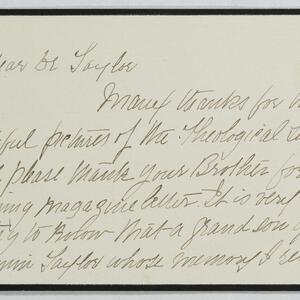 ear Dr Taylor
Many thanks for
ful pictures of the Theological
please thank your Brother for
ing Magazine letter. It is very
to know that a grand son
min Taylor whose memory I re